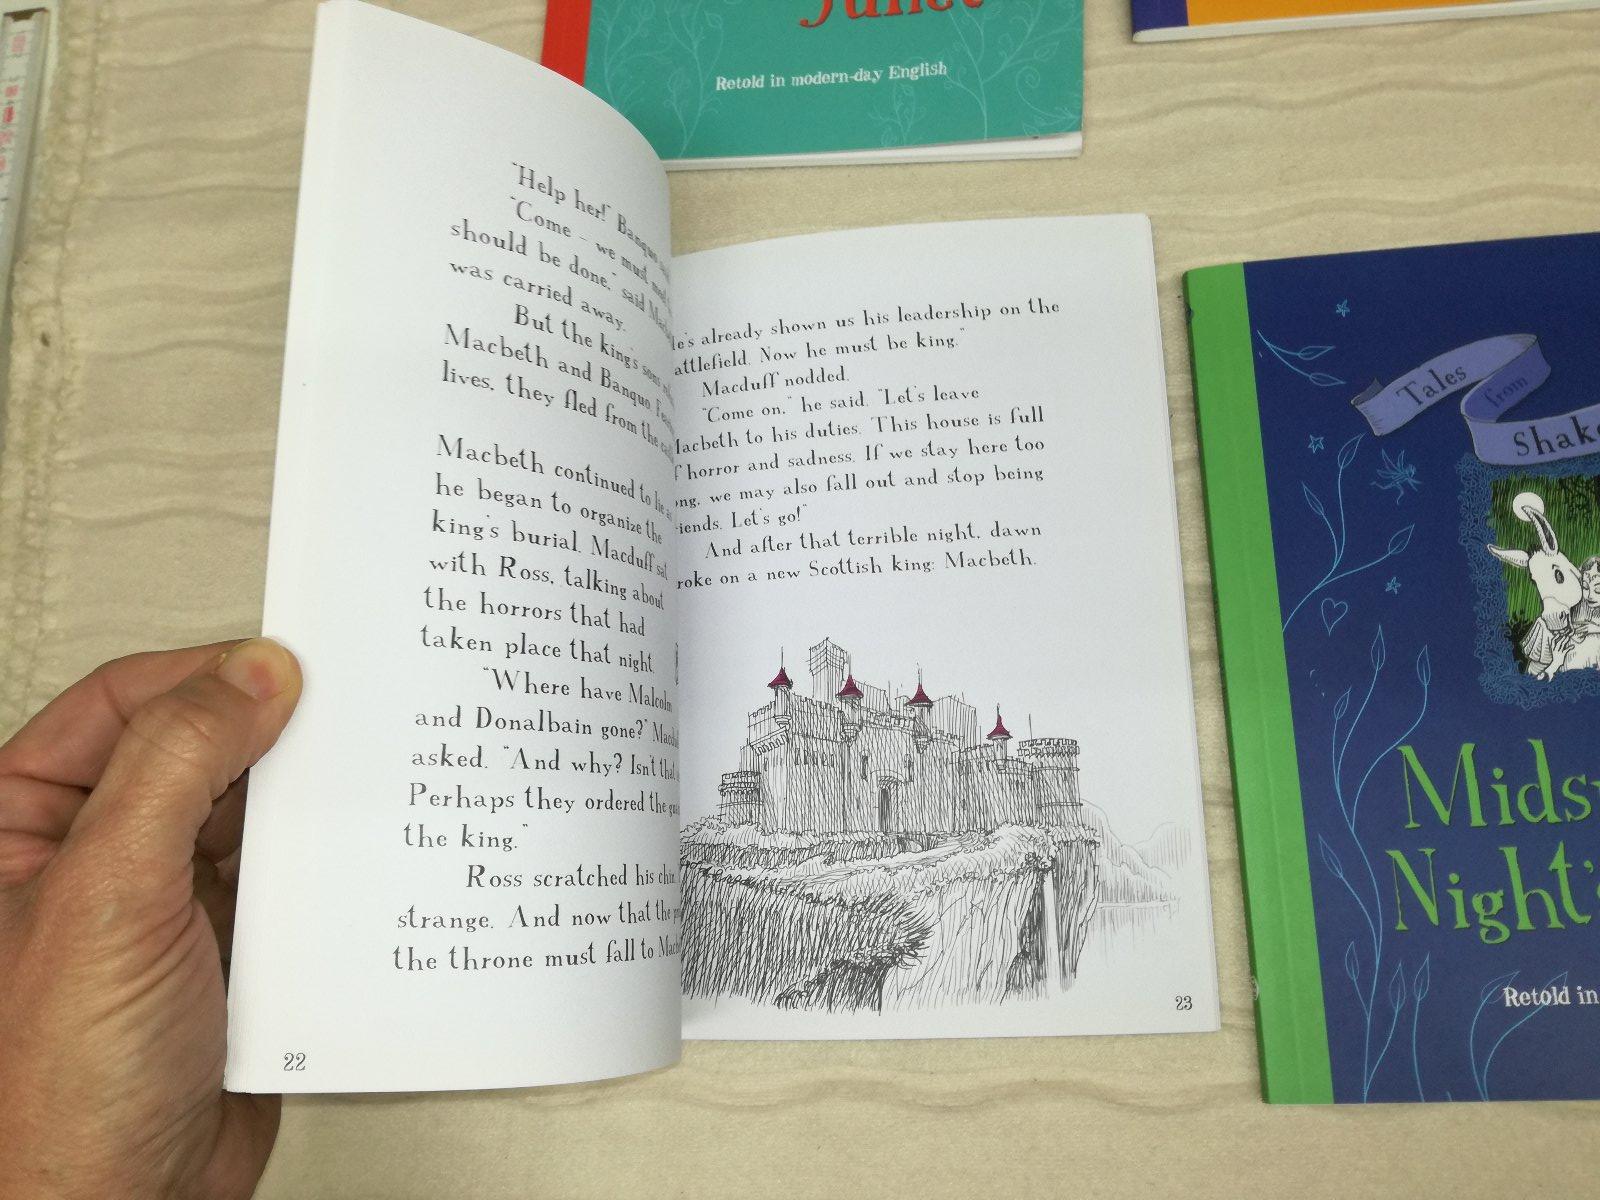 Juliet
Retold in modern-day English
"Help her!" Banquo
"Come – we must
should be done," said
was carried away.
But the king's sons
Macbeth and Banquo
lives, they fled from the
Macbeth continued to lie
he began to organize the
king's burial. Macduff sat
with Ross, talking about
the horrors that had
taken place that night.
"Where have Malcolm
and Donalbain gone?"
asked. "And why? Isn't that
Perhaps they ordered the
the king."
Ross scratched his chin.
strange. And now that the
the throne must fall to
22
already shown us his leadership on the
Now he must be king."
Macduff nodded.
"Come on," he said. "Let's leave
to his duties. This house is full
horror and sadness. If we stay here too
we may also fall out and stop being
Let's go!"
And after that terrible night, dawn
on a new Scottish king: Macbeth.
23
Tales
from
Shake
Mids
Night's
Retold in